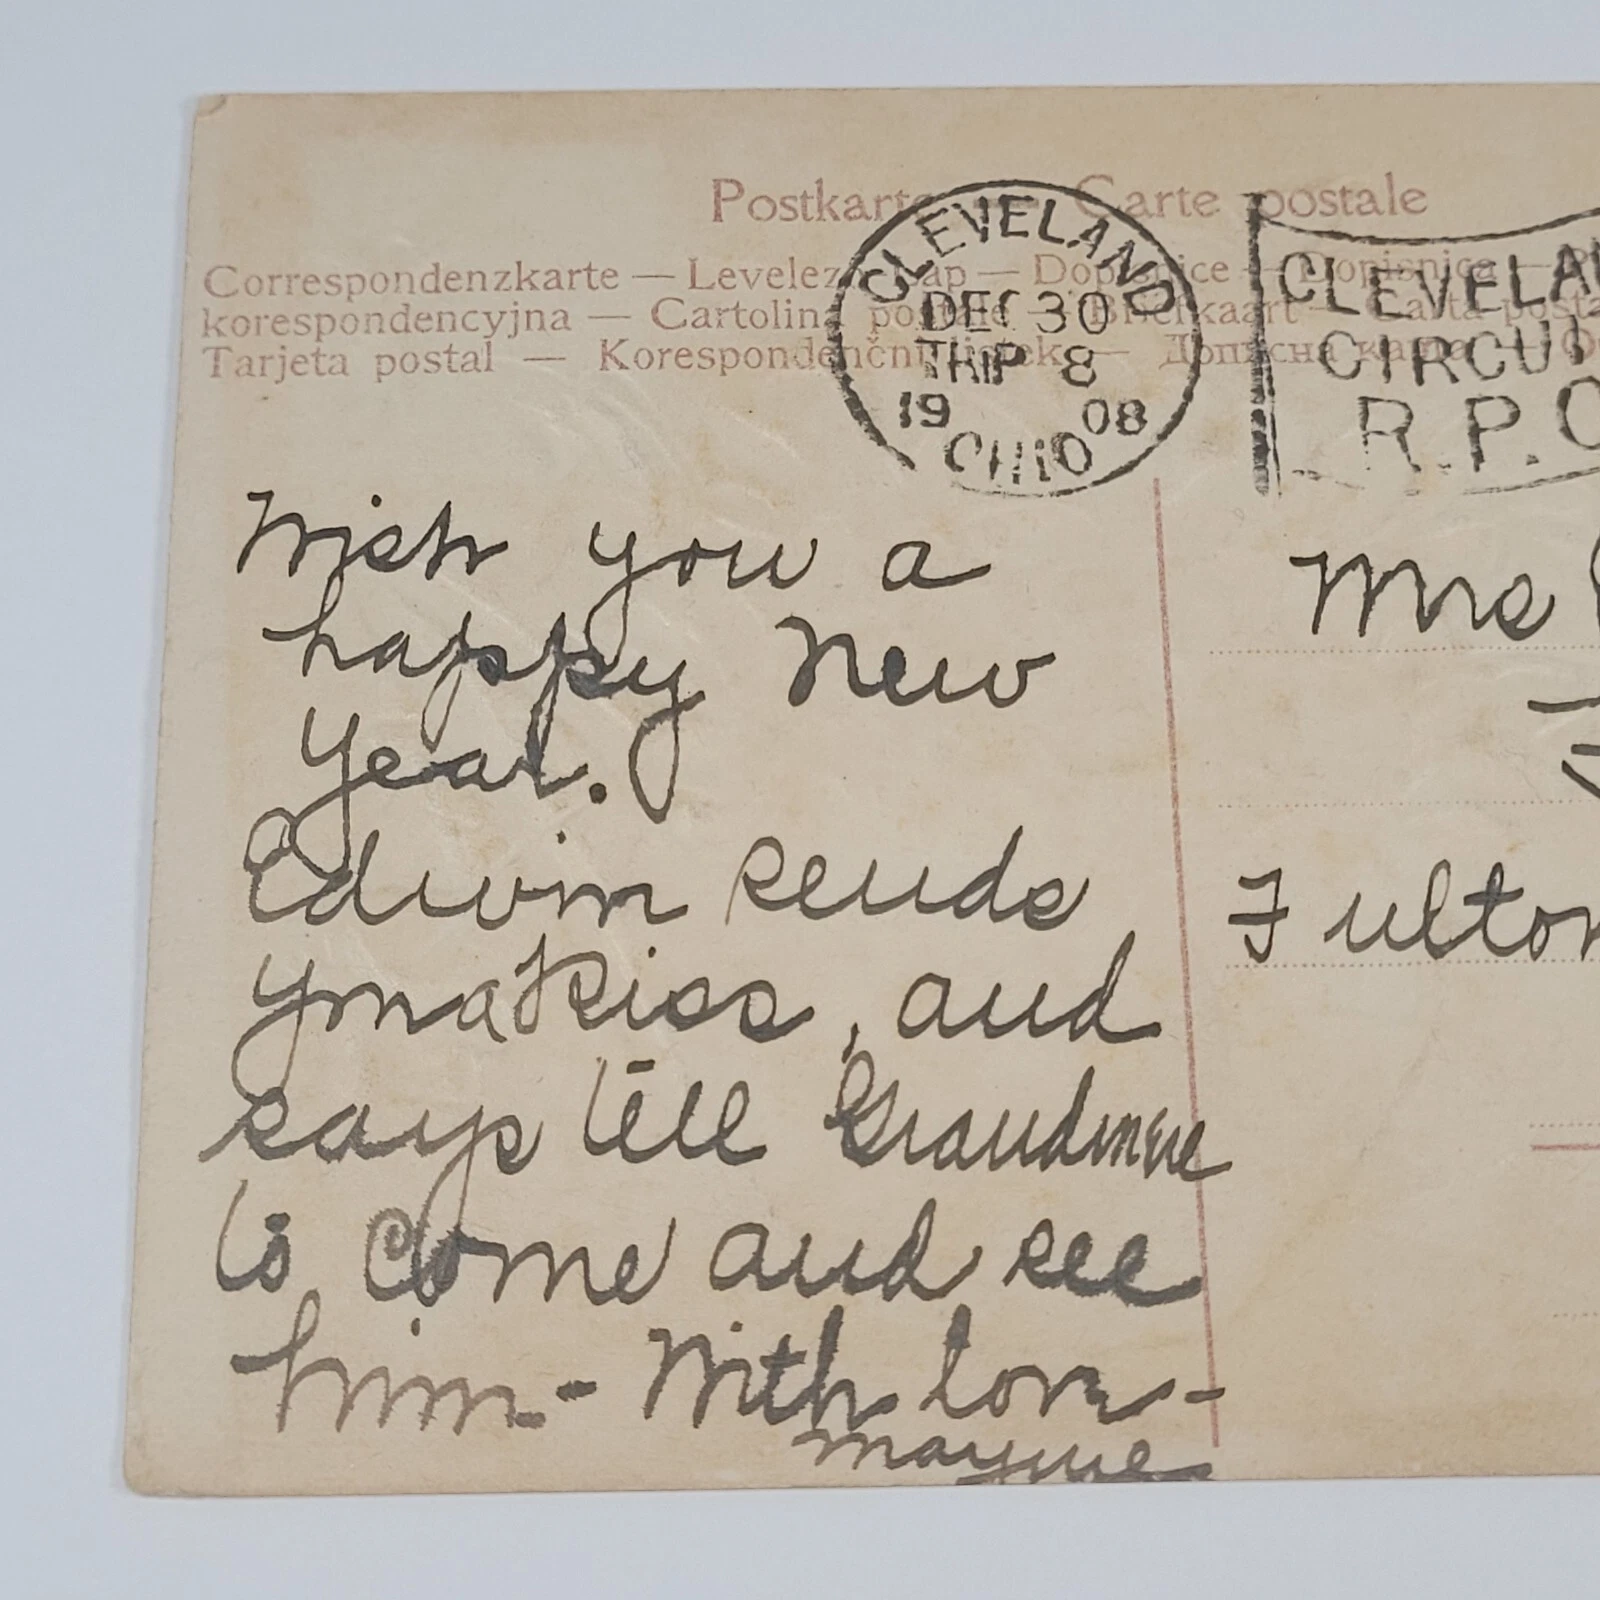 Postkarte — Carte postale
Correspondenzkarte — Levelezőlap — Dopisnice — Dopisnica —
korespondencyjna — Cartolina postale — Briefkaart — Carta posta
Tarjeta postal — Korespondenční lístek — Дописна карта —
CLEVELAND
DEC 30
TRIP 8
19 08
OHIO
CLEVELAN
CIRCUI
R.P.O
Wish you a
happy New
Year.
Edwin sends
a Kiss, and
says tell
to Come and see
him - With love -
Mayme
Mrs
Fulton